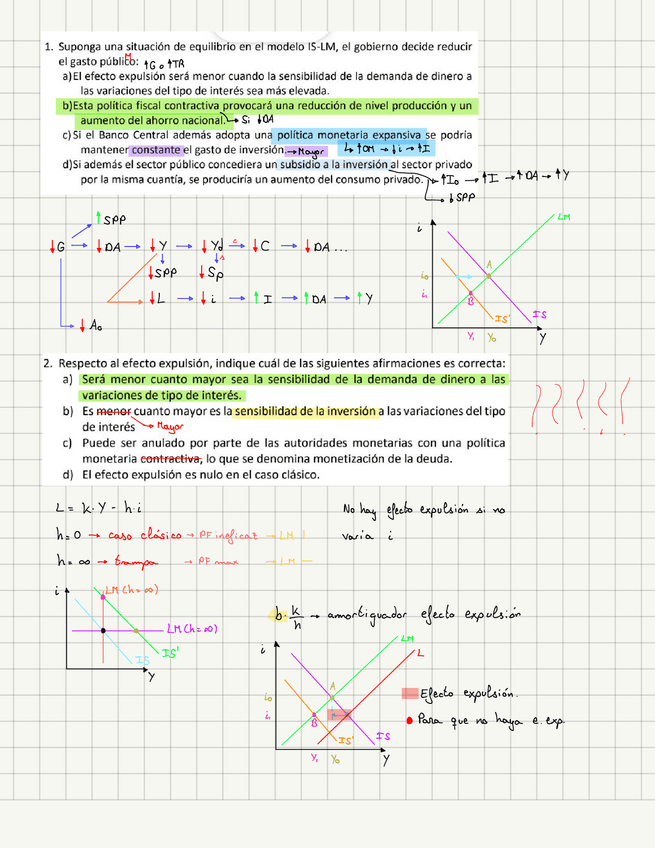 1. Suponga una situación de equilibrio en el modelo IS-LM, el gobierno decide reducir
el gasto público: ↑G o ↑TR
a) El efecto expulsión será menor cuando la sensibilidad de la demanda de dinero a
las variaciones del tipo de interés sea más elevada.
b) Esta política fiscal contractiva provocará una reducción de nivel producción y un
aumento del ahorro nacional. → Si ↓DA
c) Si el Banco Central además adopta una política monetaria expansiva se podría
mantener constante el gasto de inversión. → Mayor ↳ ↑OM → ↓i → ↑I
d) Si además el sector público concediera un subsidio a la inversión al sector privado
por la misma cuantía, se produciría un aumento del consumo privado. → ↑I₀ → ↑I → ↑DA → ↑Y
↓SPP
↑SPP
↓G → ↓DA → ↓Y → ↓Yd → ↓C → ↓DA ...
↓SPP ↓Sp
↓L → ↓i → ↑I → ↑DA → ↑Y
↓A₀
i LM
A
i₀
i₁ B
IS' IS
Y₁ Y₀ Y
2. Respecto al efecto expulsión, indique cuál de las siguientes afirmaciones es correcta:
a) Será menor cuanto mayor sea la sensibilidad de la demanda de dinero a las
variaciones de tipo de interés.
b) Es menor cuanto mayor es la sensibilidad de la inversión a las variaciones del tipo
de interés → Mayor
c) Puede ser anulado por parte de las autoridades monetarias con una política
monetaria contractiva, lo que se denomina monetización de la deuda.
d) El efecto expulsión es nulo en el caso clásico.
L = k·Y - h·i
No hay efecto expulsión si no
varia i
h = 0 → caso clásico → PF ineficaz → LM |
h = ∞ → trampa → PF max → LM —
i LM (h = ∞)
LM (h = ∞)
IS IS'
Y
b · k/h → amortiguador efecto expulsión
i LM
L
A
i₀
i₁ B
IS' IS
Y₁ Y₀ Y
Efecto expulsión.
Para que no haya e. exp.